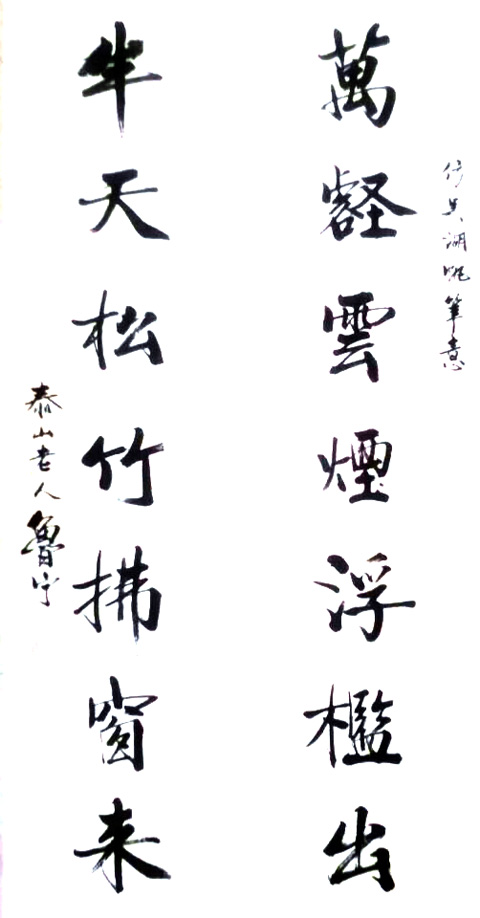 仿吴湖帆筆意
萬壑雲煙浮檻出
半天松竹拂窗来
泰山老人魯宁